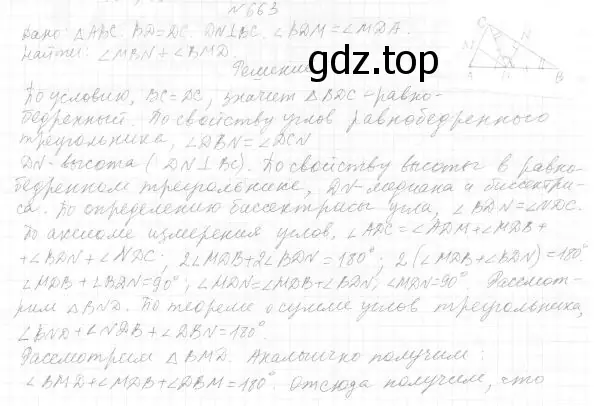 N 663
Дано: △ABC. BD=DC. DN⊥BC. ∠BDM=∠MDA.
Найти: ∠MBN+∠BMD.
Решение
gdz.top
По условию, BC=DC, значит △BDC-равно-
бедренный. По свойству углов равнобедренного
треугольника, ∠DBN=∠DCN
DN-высота (DN⊥BC). По свойству высоты в равно-
бедренном треугольнике, DN-медиана и биссектри-
са. По определению биссектрисы угла, ∠BDN=∠NDC.
По аксиоме измерения углов, ∠ADC=∠ADM+∠MDB+
+∠BDN+∠NDC; 2∠MDB+2∠BDN=180°; 2(∠MDB+∠BDN)=180°
∠MDB+∠BDN=90°; ∠MDN=∠MDB+∠BDN; ∠MDN=90°. Рассмот-
рим △BND. По теореме о сумме углов треугольника,
∠BND+∠NDB+∠DBN=180°.
Рассмотрим △BMD. Аналогично получим:
∠BMD+∠MDB+∠DBM=180°. Отсюда получим, что
C
N
A
B